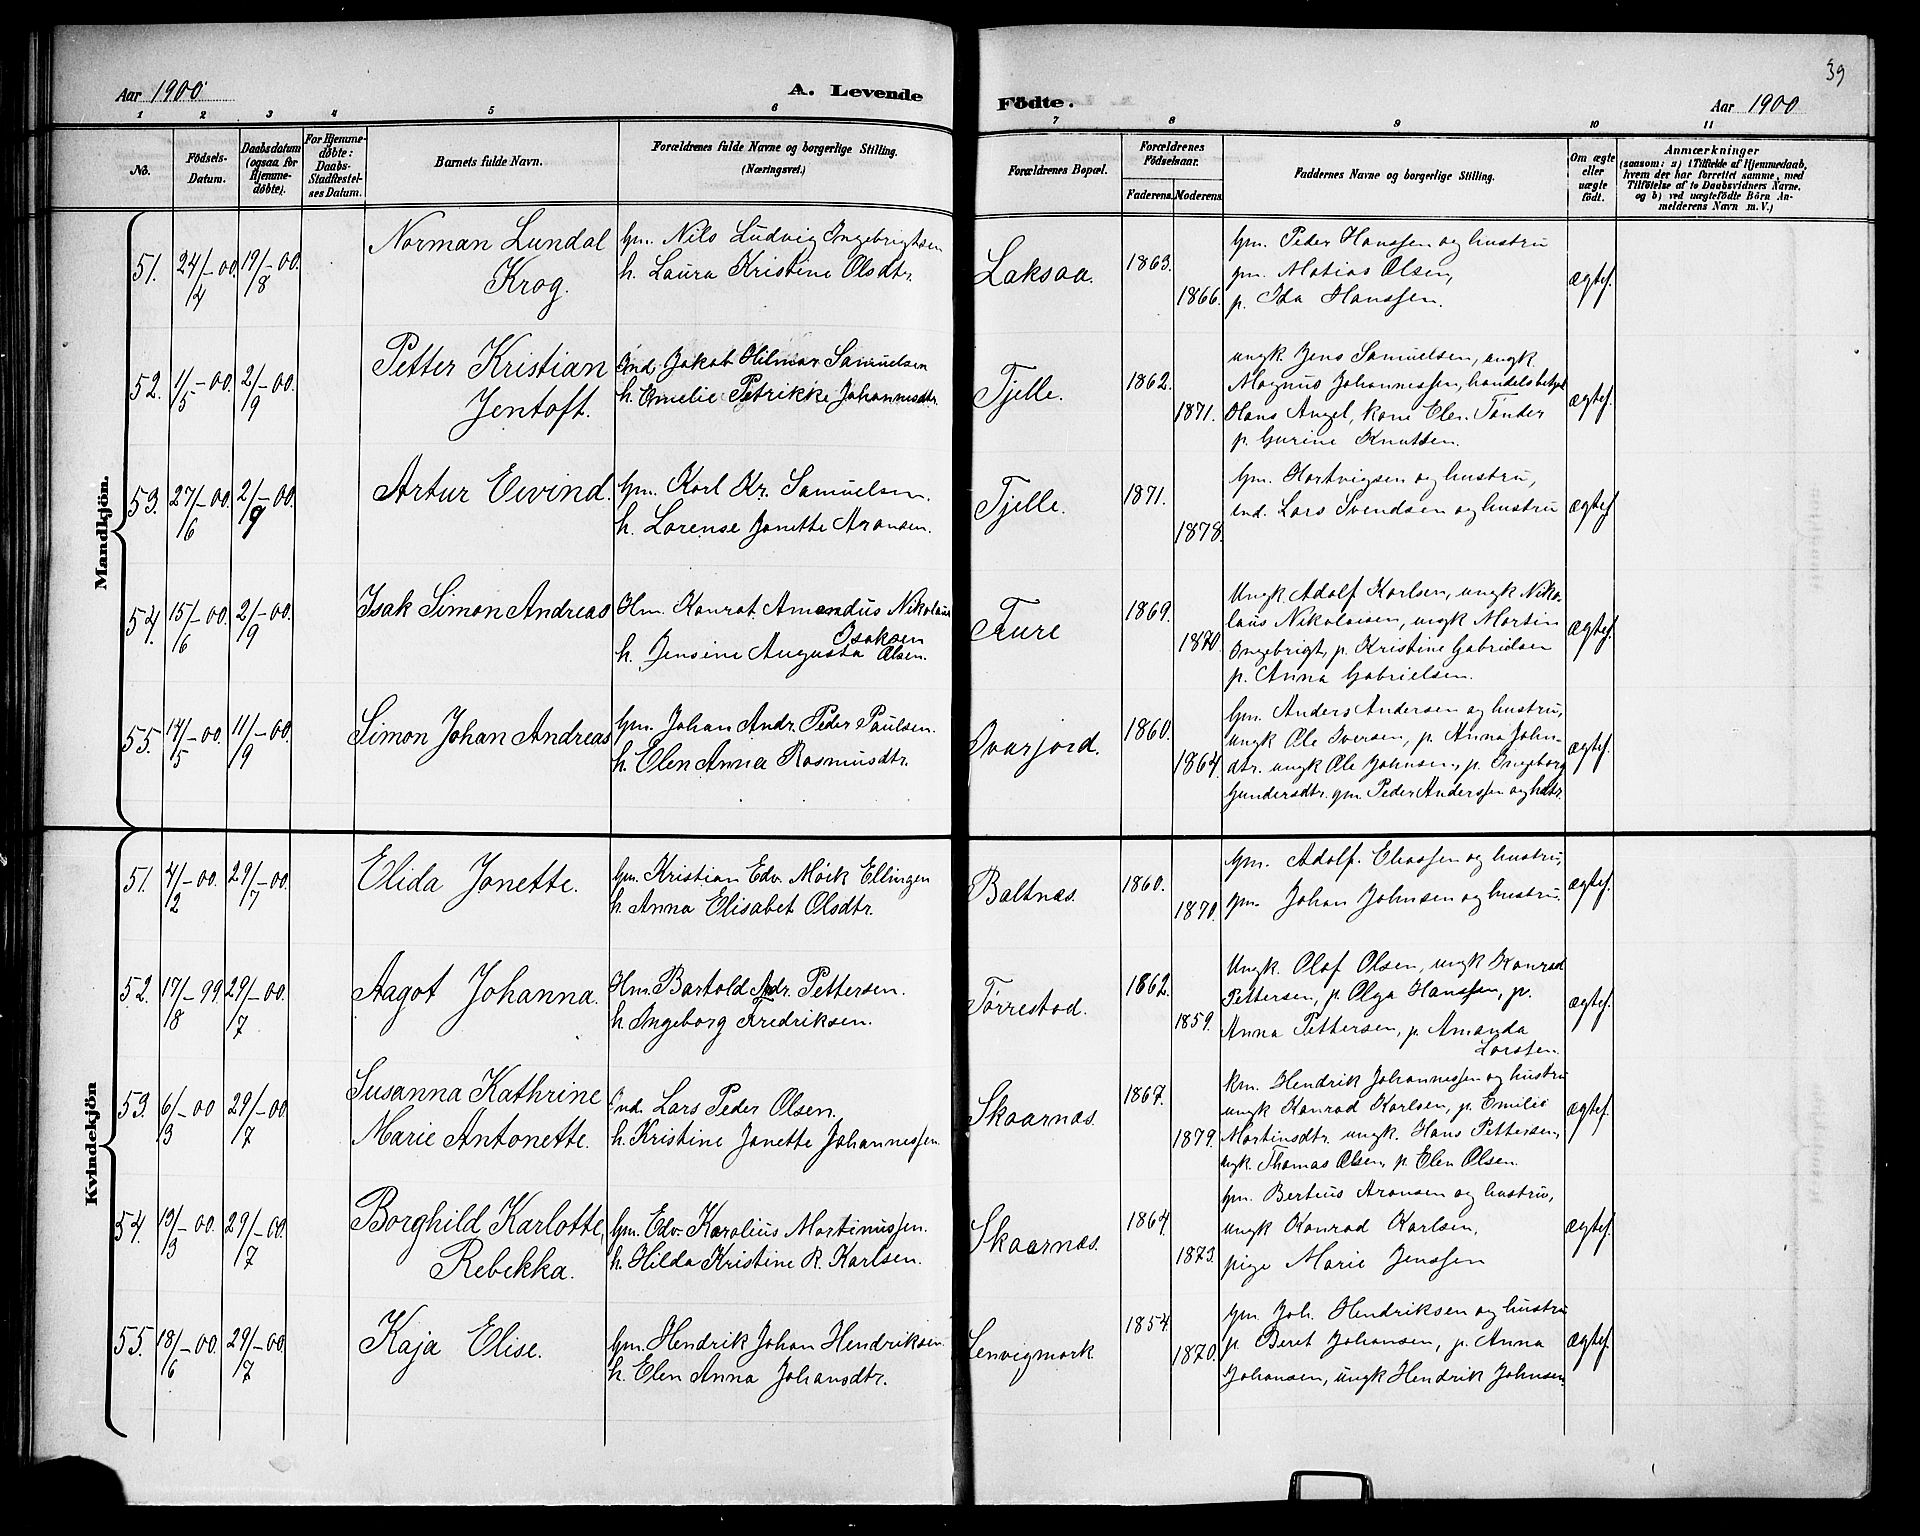 39
Aar 1900
A. Levende
Födte.
Aar 1900
1 2 3 4 5 6 7 8 9 10 11
No.
Födsels-
Datum.
Daabsdatum
(ogsaa for
Hjemme-
döbte).
For Hjemme-
döbte:
Daabs-
Stadfæstel-
ses Datum.
Barnets fulde Navn.
Forældrenes fulde Navne og borgerlige Stilling.
(Næringsvei.)
Forældrenes Bopæl.
Forældrenes
Födselsaar.
Faderens. Moderens.
Faddernes Navne og borgerlige Stilling.
Om ægte
eller
uægte
födt.
Anmærkninger
(saasom: a) i Tilfælde af Hjemmedaab,
hvem der har forrettet samme, med
Tilföielse af to Daabsvidners Navne,
og b) ved uægtefödte Börn An-
melderens Navn m. V.)
Mandkjön.
51. 24/4-00. 19/8-00.
Norman Lundal
Krog.
Gm. Nils Ludvig Ingebrigtsen
h. Laura Kristine Olsdtr.
Laksaa.
1863.
1866.
Gm. Peder Hanssen og hustru
gm. Matias Olsen,
p. Ida Hanssen.
ægtef.
52. 1/5-00. 2/9-00.
Petter Kristian
Jentoft.
Ind. Jakob Hilmar Samuelsen
h. Emelie Petrikke Johannesdtr.
Tjelle.
1862.
1871.
ungk. Jens Samuelsen, ungk.
Magnus Johannessen, handelsbetjent
Hans Angel, kone Elen Tønder
p. Gurine Knutsen.
ægtef.
53. 27/6-00. 2/9-00.
Artur Eivind.
Gm. Karl Kr. Samuelsen.
h. Lorense Janette Aronsen.
Tjelle.
1871.
1878.
Gm. Hartvigsen og hustru,
ind. Lars Svendsen og hustru
ægtef.
54. 15/6-00. 2/9-00.
Isak Simon Andreas
Hm. Konrat Amandus Nikolaus
Isaksen
h. Jensine Augusta Olsen.
Fure
1869.
1870.
Ungk. Adolf Karlsen, ungk Niko-
laus Nikolaisen, ungk Martin
Ingebrigt, p. Kristine Gabrielsen
p. Anna Gabrielsen.
ægtef.
55. 14/5-00. 11/9-00.
Simon Johan Andreas
Gm. Johan Andr. Peder Paulsen.
h. Elen Anna Rasmusdtr.
Ivarjord.
1860.
1864.
Gm. Anders Andersen og hustru,
ungk Ole Iversen, p. Anna John-
dtr. ungk Ole Johnsen, p. Ingeborg
Gundersdtr. gm. Peder Anderssen og hstr.
ægtef.
Kvindekjön
51. 4/2-00. 29/7-00.
Elida Jonette.
Gm. Kristian Edv. Møik Ellingen
h. Anna Elisabet Olsdtr.
Baltnæs.
1860.
1870.
Gm. Adolf. Eliassen og hustru,
gm. Johan Johnsen og hustru.
ægtef.
52. 17/8-99. 29/7-00.
Aagot Johanna.
Hm. Bartold Andr. Pettersen.
h Ingeborg Fredriksen.
Tørrestad.
1862.
1859.
Ungk. Olaf Olsen, ungk Konrad
Pettersen, p. Olga Hanssen, p.
Anna Pettersen, p. Amanda
Larssen.
ægtef.
53. 6/3-00 29/7-00
Susanna Kathrine
Marie Antonette.
Ind. Lars Peder Olsen.
h. Kristine Janette Johannessen
Skaarnæs.
1867.
1879.
km. Hendrik Johannessen og hustru
ungk Konrad Karlsen, p. Emilie
Martinsdtr. ungk. Hans Pettersen,
ungk. Thomas Olsen, p. Elen Olsen.
ægtef.
54. 13/3-00. 29/7-00.
Borghild Karlotte,
Rebekka.
Gm. Edv. Karolius Martinussen.
h. Hilda Kristine R. Karlsen.
Skaarnæs.
1864.
1873.
Gm. Bertius Aronsen og hustru,
ungk Konrad Karlsen,
pige Marie Jenssen
ægtef.
55. 18/6-00. 29/7-00.
Kaja Elise.
Gm. Hendrik Johan Hendriksen.
h. Elen Anna Johansdtr.
Lenvigmark.
1854.
1870.
Gm. Joh. Hendriksen og hustru
p. Beret Johansen, p. Anna
Johansen, ungk Hendrik Johnsen.
ægtef.